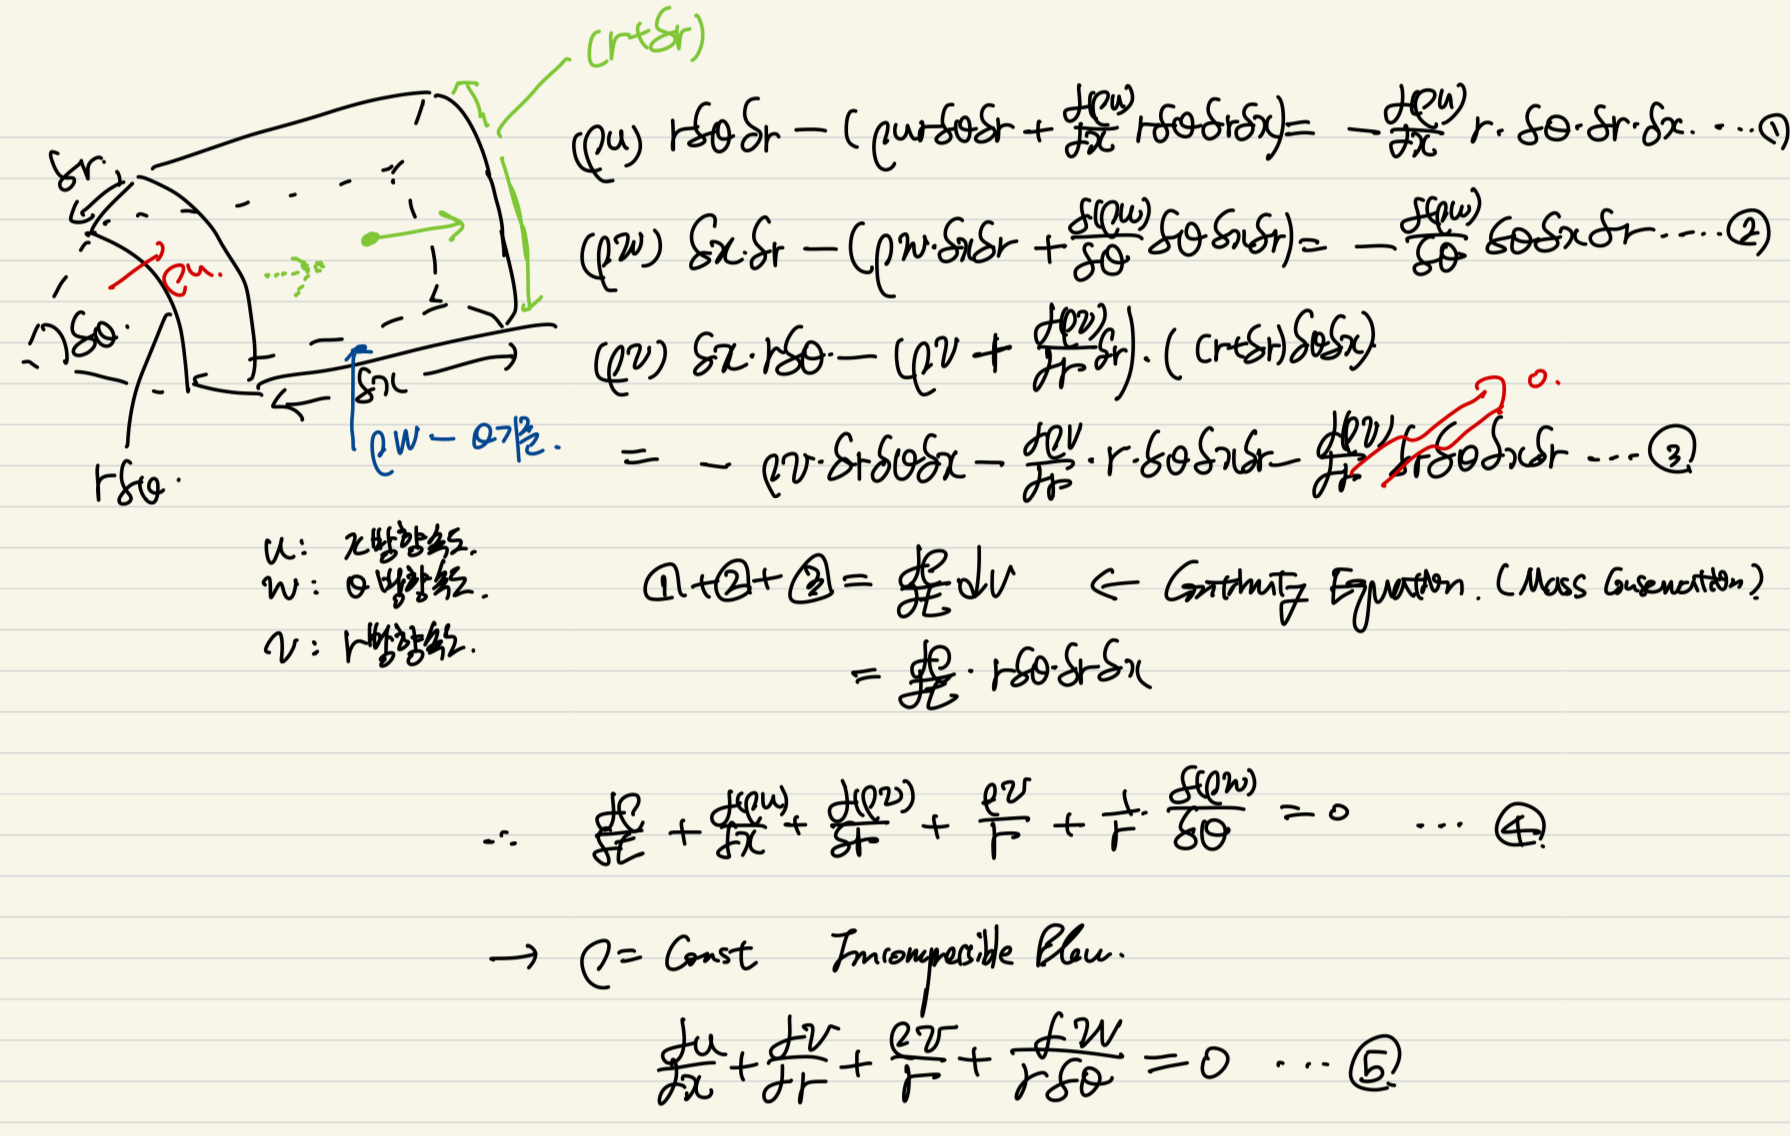 (r+δr)
(ρu) rδθδr − (ρurδθδr + δ(ρu)/δx rδθδrδx) = − δ(ρu)/δx r·δθ·δr·δx. ⋯ ①
δr.
(ρw) δx·δr − (ρw·δxδr + δ(ρw)/δθ δθδxδr) = − δ(ρw)/δθ δθδxδr ⋯ ②
ρu.
δθ.
(ρv) δx·rδθ· − (ρv + δ(ρv)/δr δr)·((r+δr)δθδx)
δx
0.
ρw − θ기준.
= − ρv·δrδθδx − δρv/δr · r·δθδxδr − δ(ρv)/δr δrδθδxδr ⋯ ③
rδθ.
u: x방향속도.
w: θ방향속도.
v: r방향속도.
①+②+③ = δρ/δt dV ← Continuity Equation. (Mass Conservation)
= δρ/δt · rδθ·δrδx
∴ δρ/δt + δ(ρu)/δx + δ(ρv)/δr + ρv/r + 1/r · δ(ρw)/δθ = 0 ⋯ ④
→ ρ = Const Imcompressible Flow.
δu/δx + δv/δr + ρv/r + δw/rδθ = 0 ⋯ ⑤